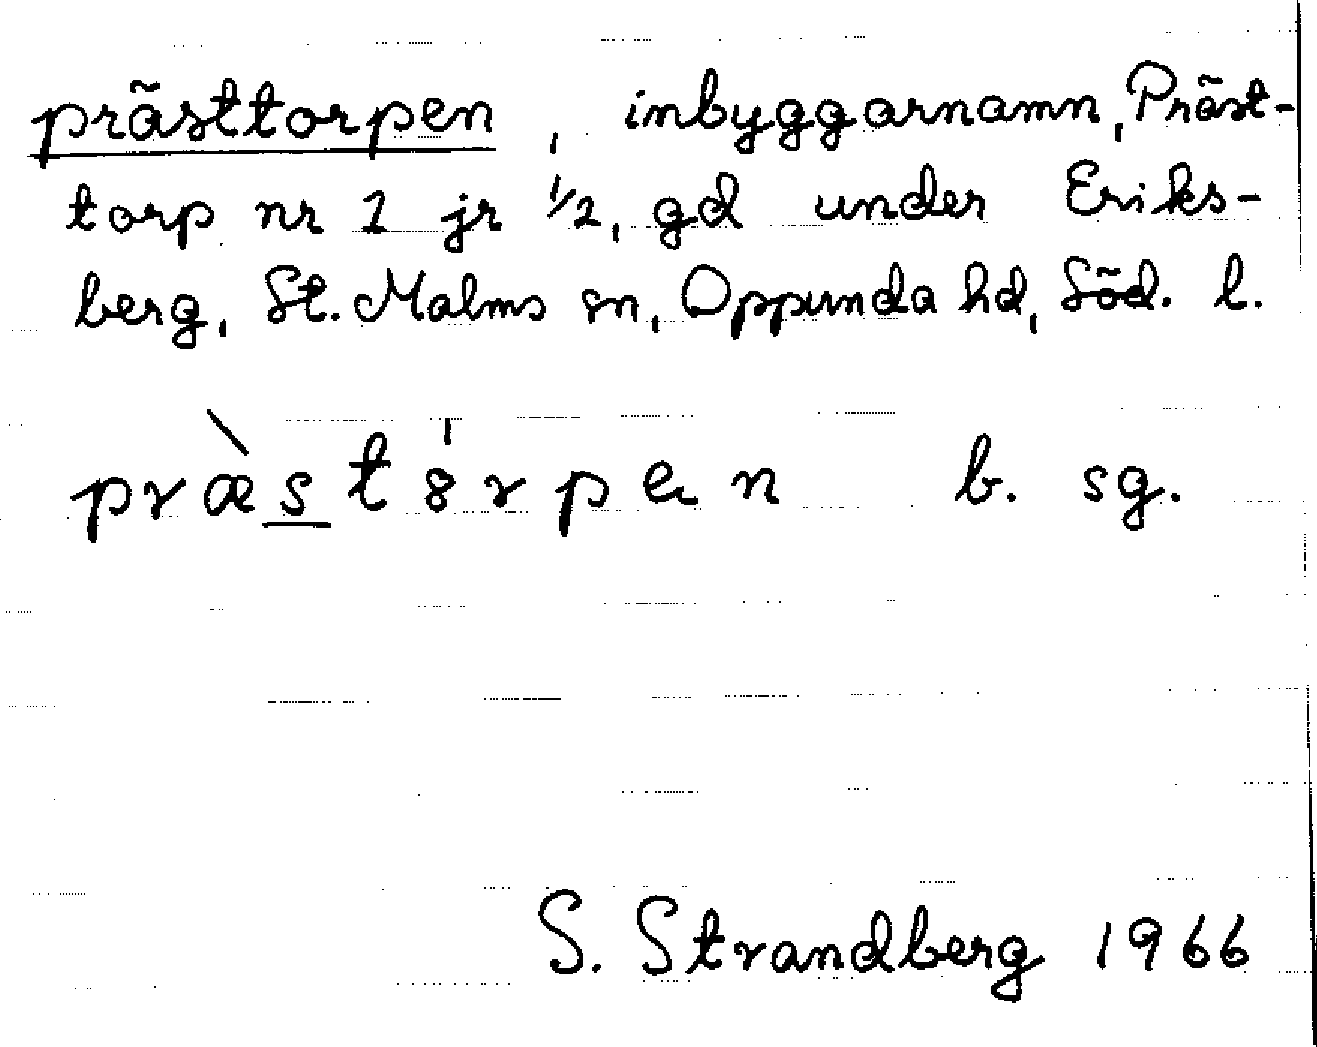 prästtorpen, inbyggarnamn, Präst-
torp nr 1 jr 1/2, gd under Eriks-
berg, St. Malms sn, Oppunda hd, Söd. l.
præ̀stȣ́rpen b. sg.
S. Strandberg 1966